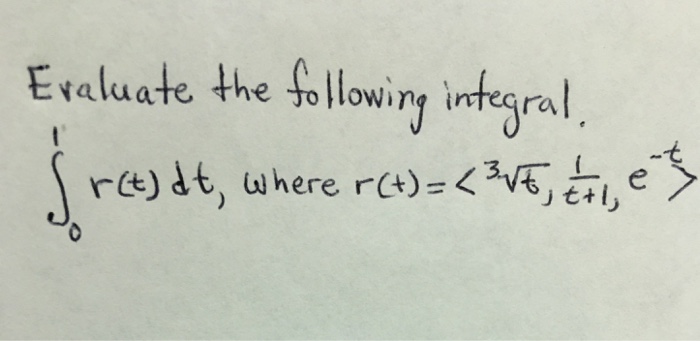 Evaluate the following integral.
∫₀¹ r(t) dt, where r(t) = <³√t, 1/(t+1), e^-t>